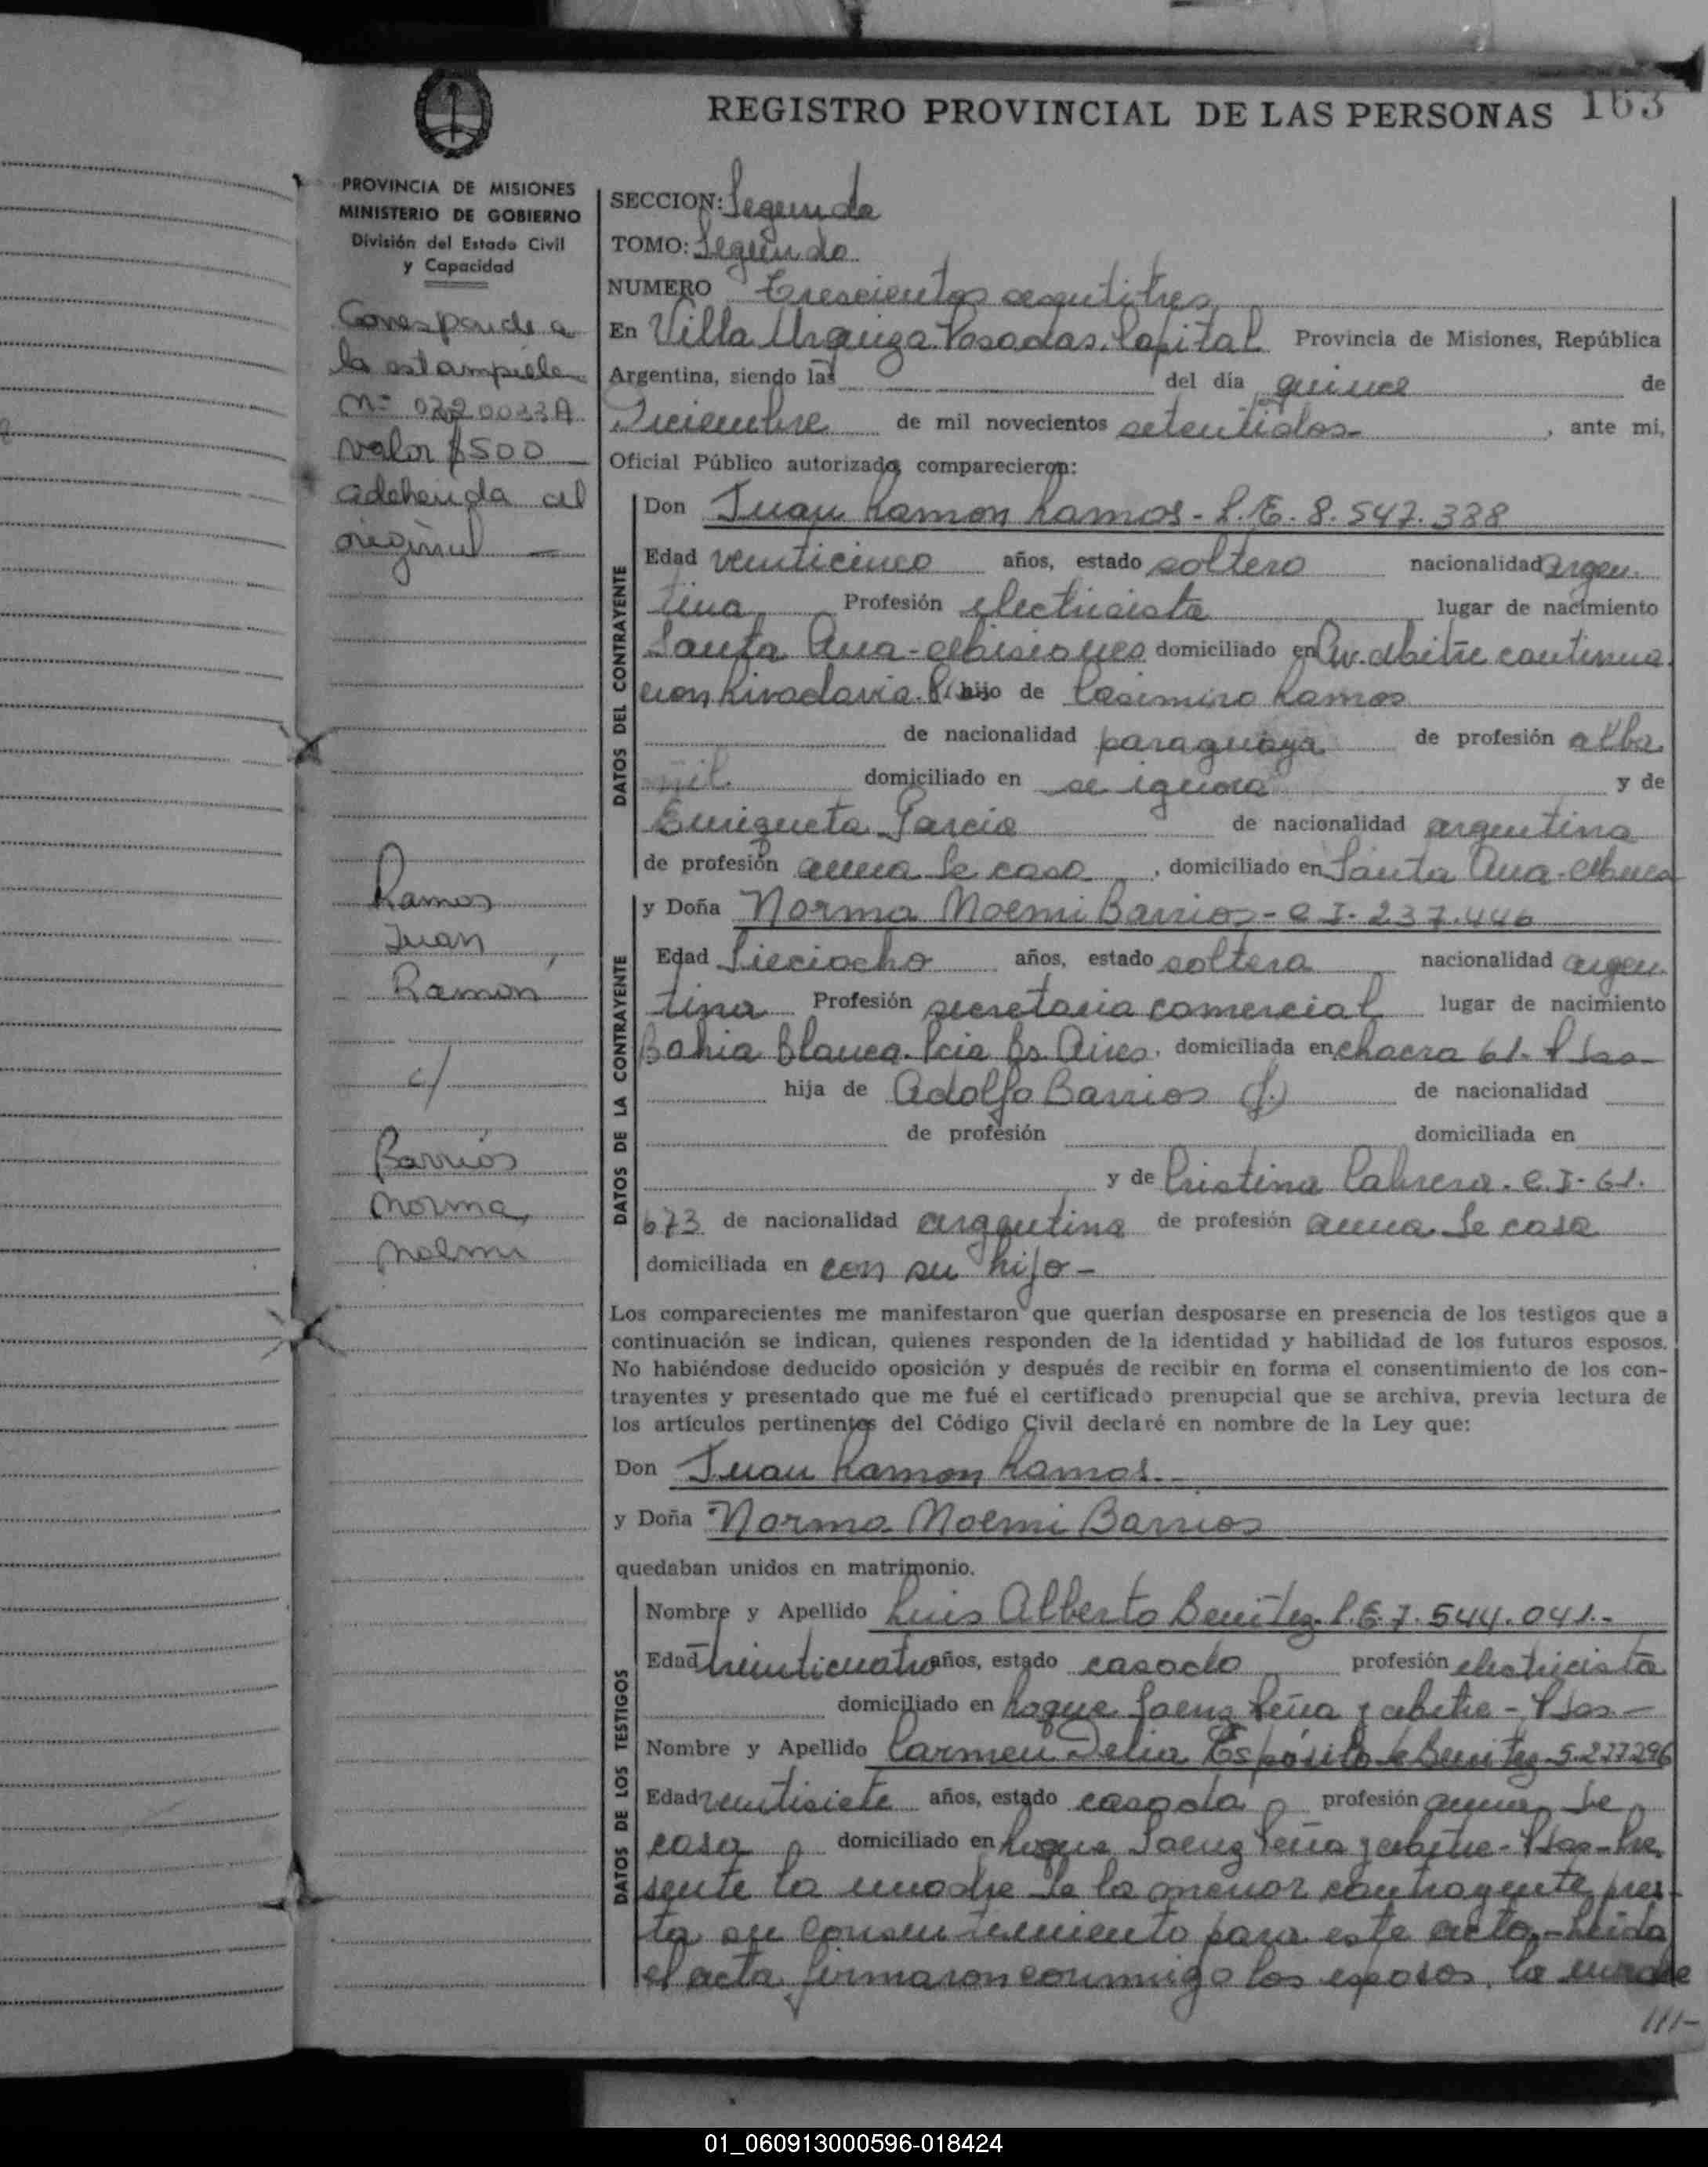 REGISTRO PROVINCIAL DE LAS PERSONAS 163
PROVINCIA DE MISIONES
MINISTERIO DE GOBIERNO
División del Estado Civil
y Capacidad
Corresponde a
la estampilla
Nº 0220033A
valor $500
adeherida al
original —
Ramos
Juan
Ramón
c/
Barrios
Norma
Noemi
SECCION: Segunda
TOMO: Segundo
NUMERO Trescientos
En Villa Urquiza. Posadas. Capital Provincia de Misiones, República
Argentina, siendo las del día quince de
Diciembre de mil novecientos setentidos , ante mi,
Oficial Público autorizado, comparecieron:
DATOS DEL CONTRAYENTE
Don Juan Ramon Ramos - L.E. 8.547.388
Edad venticinco años, estado soltero nacionalidad argen
tina Profesión electricista lugar de nacimiento
Santa Ana - Misiones domiciliado en Av. Mitre continua
cion Rivadavia. hijo de Casimiro Ramos
de nacionalidad paraguaya de profesión alba
ñil domiciliado en se ignora y de
Enriqueta Garcia de nacionalidad argentina
de profesión ama de casa , domiciliado en Santa Ana -
DATOS DE LA CONTRAYENTE
y Doña Norma Noemi Barrios - C.I. 237.446
Edad Dieciocho años, estado soltera nacionalidad argen
tina Profesión secretaria comercial lugar de nacimiento
Bahia Blanca. Pcia Bs. Aires. domiciliada en chacra 61. Pdas
hija de Adolfo Barrios (f.) de nacionalidad
de profesión domiciliada en
y de Cristina Cabrera. C.I. 61.
673 de nacionalidad argentina de profesión ama de casa
domiciliada en con su hijo -
Los comparecientes me manifestaron que querían desposarse en presencia de los testigos que a
continuación se indican, quienes responden de la identidad y habilidad de los futuros esposos.
No habiéndose deducido oposición y después de recibir en forma el consentimiento de los con-
trayentes y presentado que me fué el certificado prenupcial que se archiva, previa lectura de
los artículos pertinentes del Código Civil declaré en nombre de la Ley que:
Don Juan Ramon Ramos.
y Doña Norma Noemi Barrios
quedaban unidos en matrimonio.
DATOS DE LOS TESTIGOS
Nombre y Apellido Luis Alberto Benitez. L.E. 7.544.041.-
Edad treinticuatro años, estado casado profesión electricista
domiciliado en Roque Saenz Peña y Mitre - Pdas -
Nombre y Apellido Carmen Delia Espósito de Benitez 5.277296
Edad ventisiete años, estado casada profesión ama de
casa domiciliado en Roque Saenz Peña y Mitre - Pdas - Pre
sente la madre de la menor contrayente, pres
ta su consentimiento para este acto. - Leida
el acta firmaron conmigo los esposos, la madre
///-
01_060913000596-018424